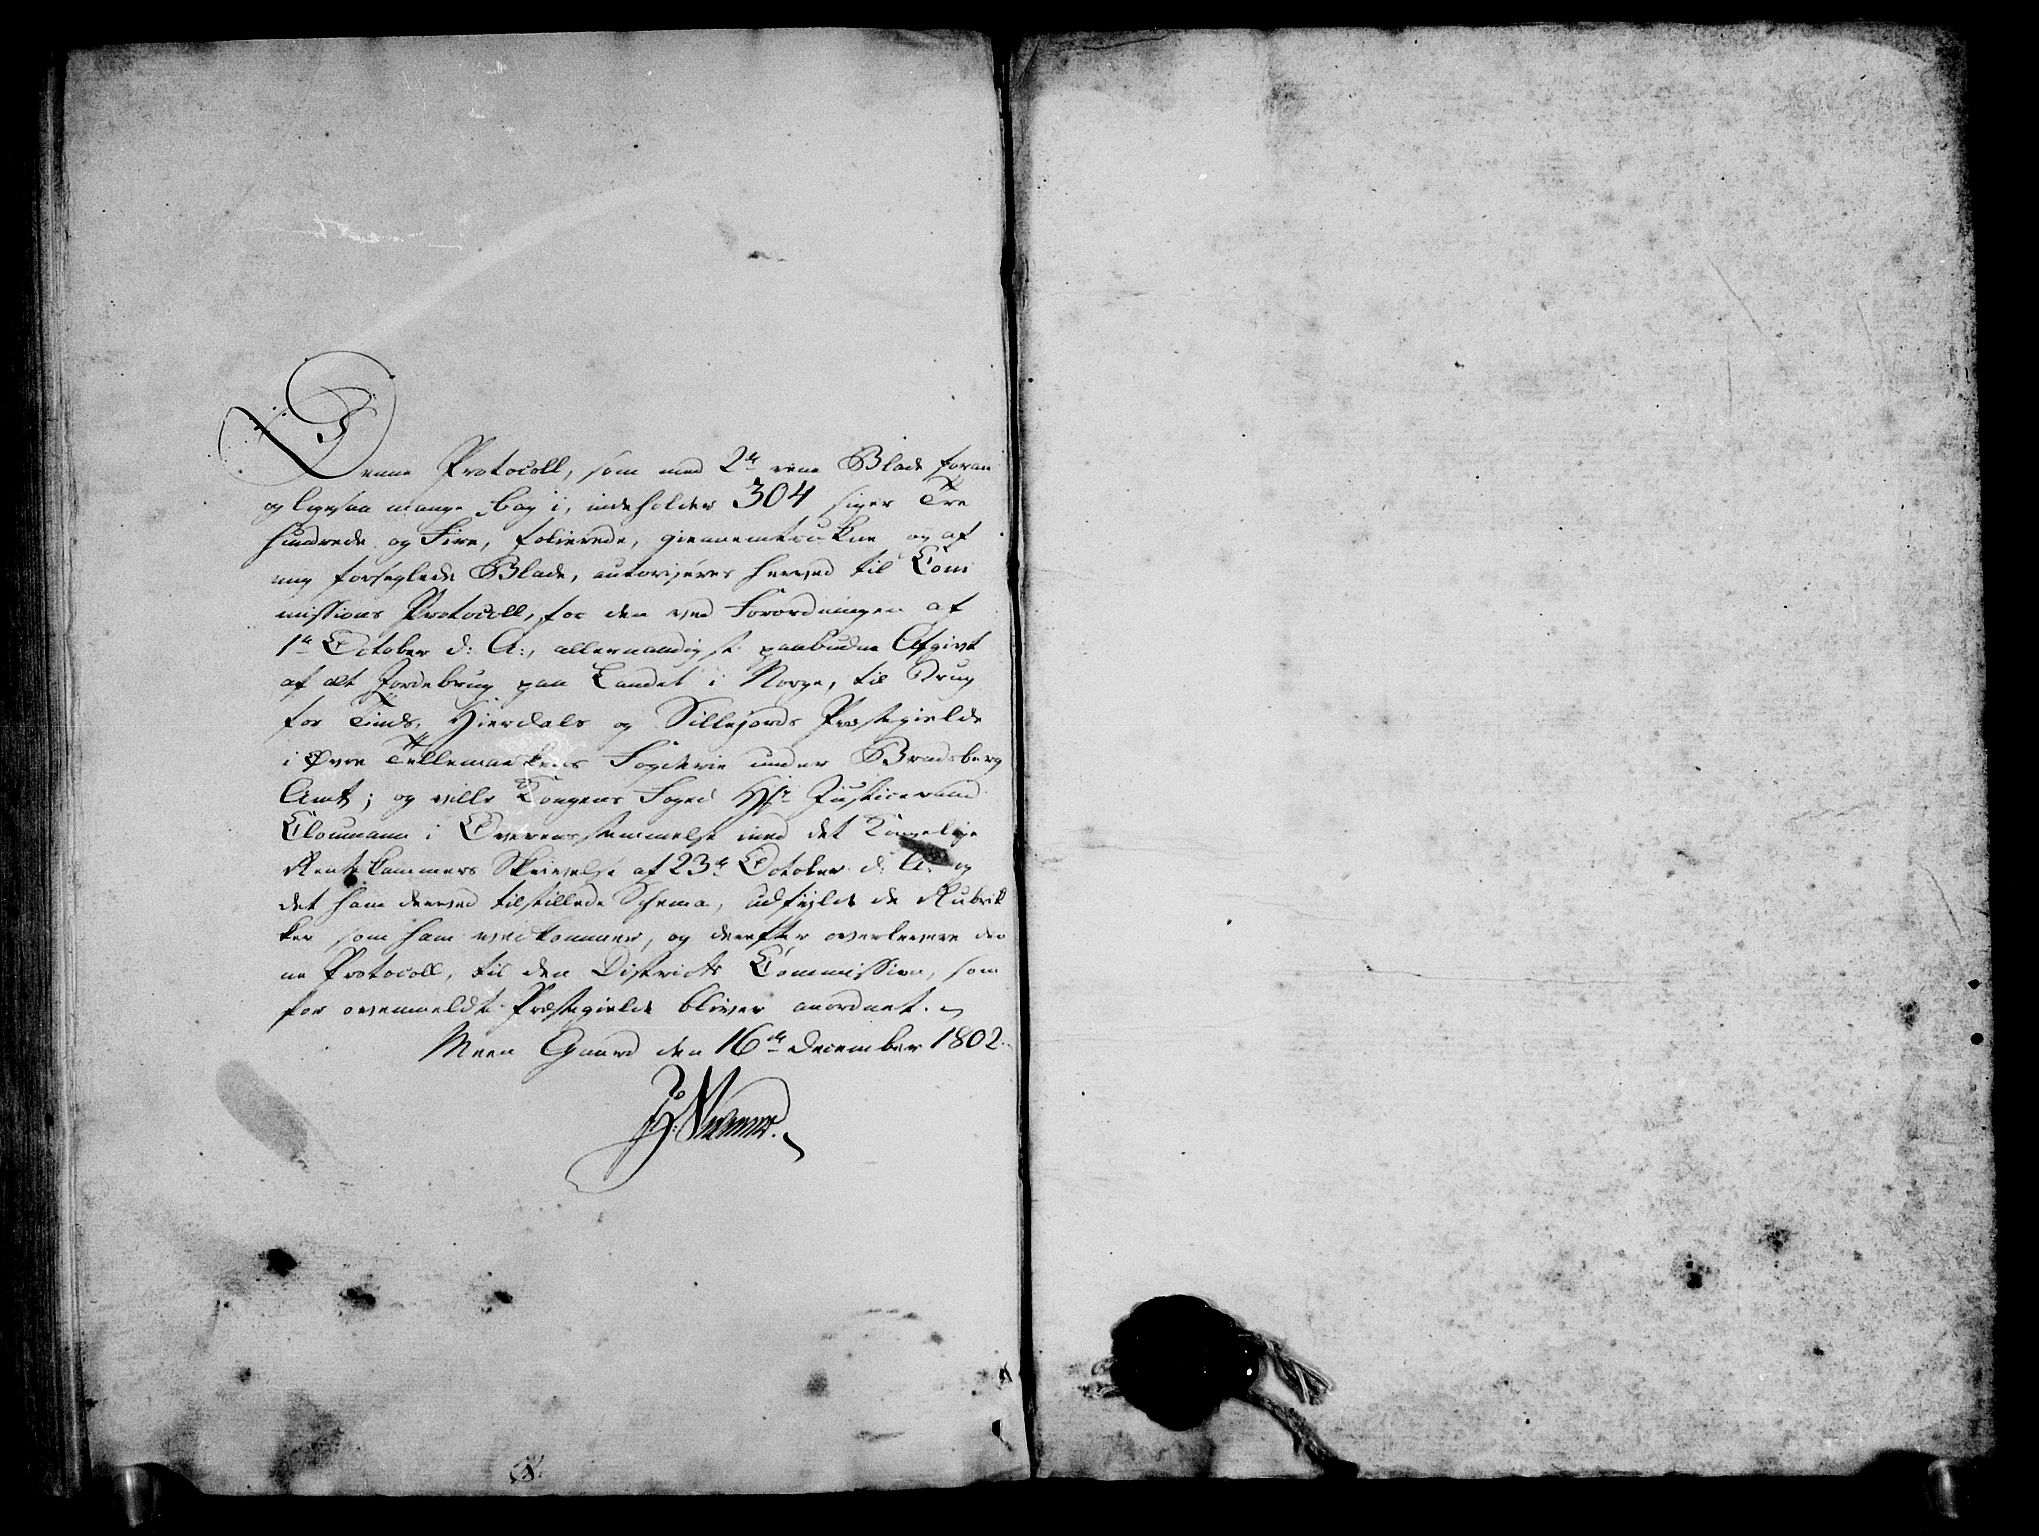 Denne Protocoll, som med 2de rene Blade foran
og ligesaa mange bag i, indeholder 304 siger Tre
hundrede og Fire, folierede, giennemtrukne og af
mig forseglede Blade, autoriseres herved til Com
missions Protocoll, for den ved Forordningen af
1te October d: A:, allernaadigst paabudne Afgivt
af alt Jordebrug paa Landet i Norge, til Brug
for Tinds, Hierdals og Sillejords Præstegields
i Øvre Tellemarkens Fogderie under Bradsberg
Amt; og vilde Kongens Foged Hr Justiceraad
Cloumann i Overensstemmelse med det Kongelige
Rentekammers Skrivelse af 23de October d: A: og
det ham derved tilstillede Schema, udfylde de Rubrik
ker som ham vedkommer, og derefter overlevere den
ne Protocoll, til den Districts Commission, som
for ovenmeldte Præstegield bliver anordnet.
Meen Gaard den 16de December 1802.